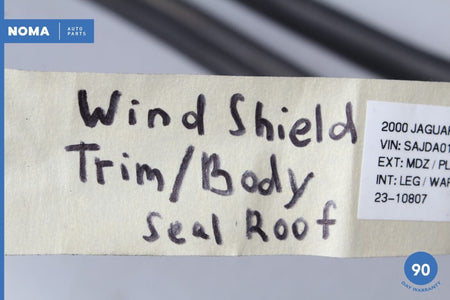 NOMA AUTO PARTS
Wind Shield
Trim/Body
Seal Roof
2000 JAGUAR
VIN: SAJDA01
EXT: MDZ / PL
INT: LEG / WAR
23-10807
90
DAY WARRANTY